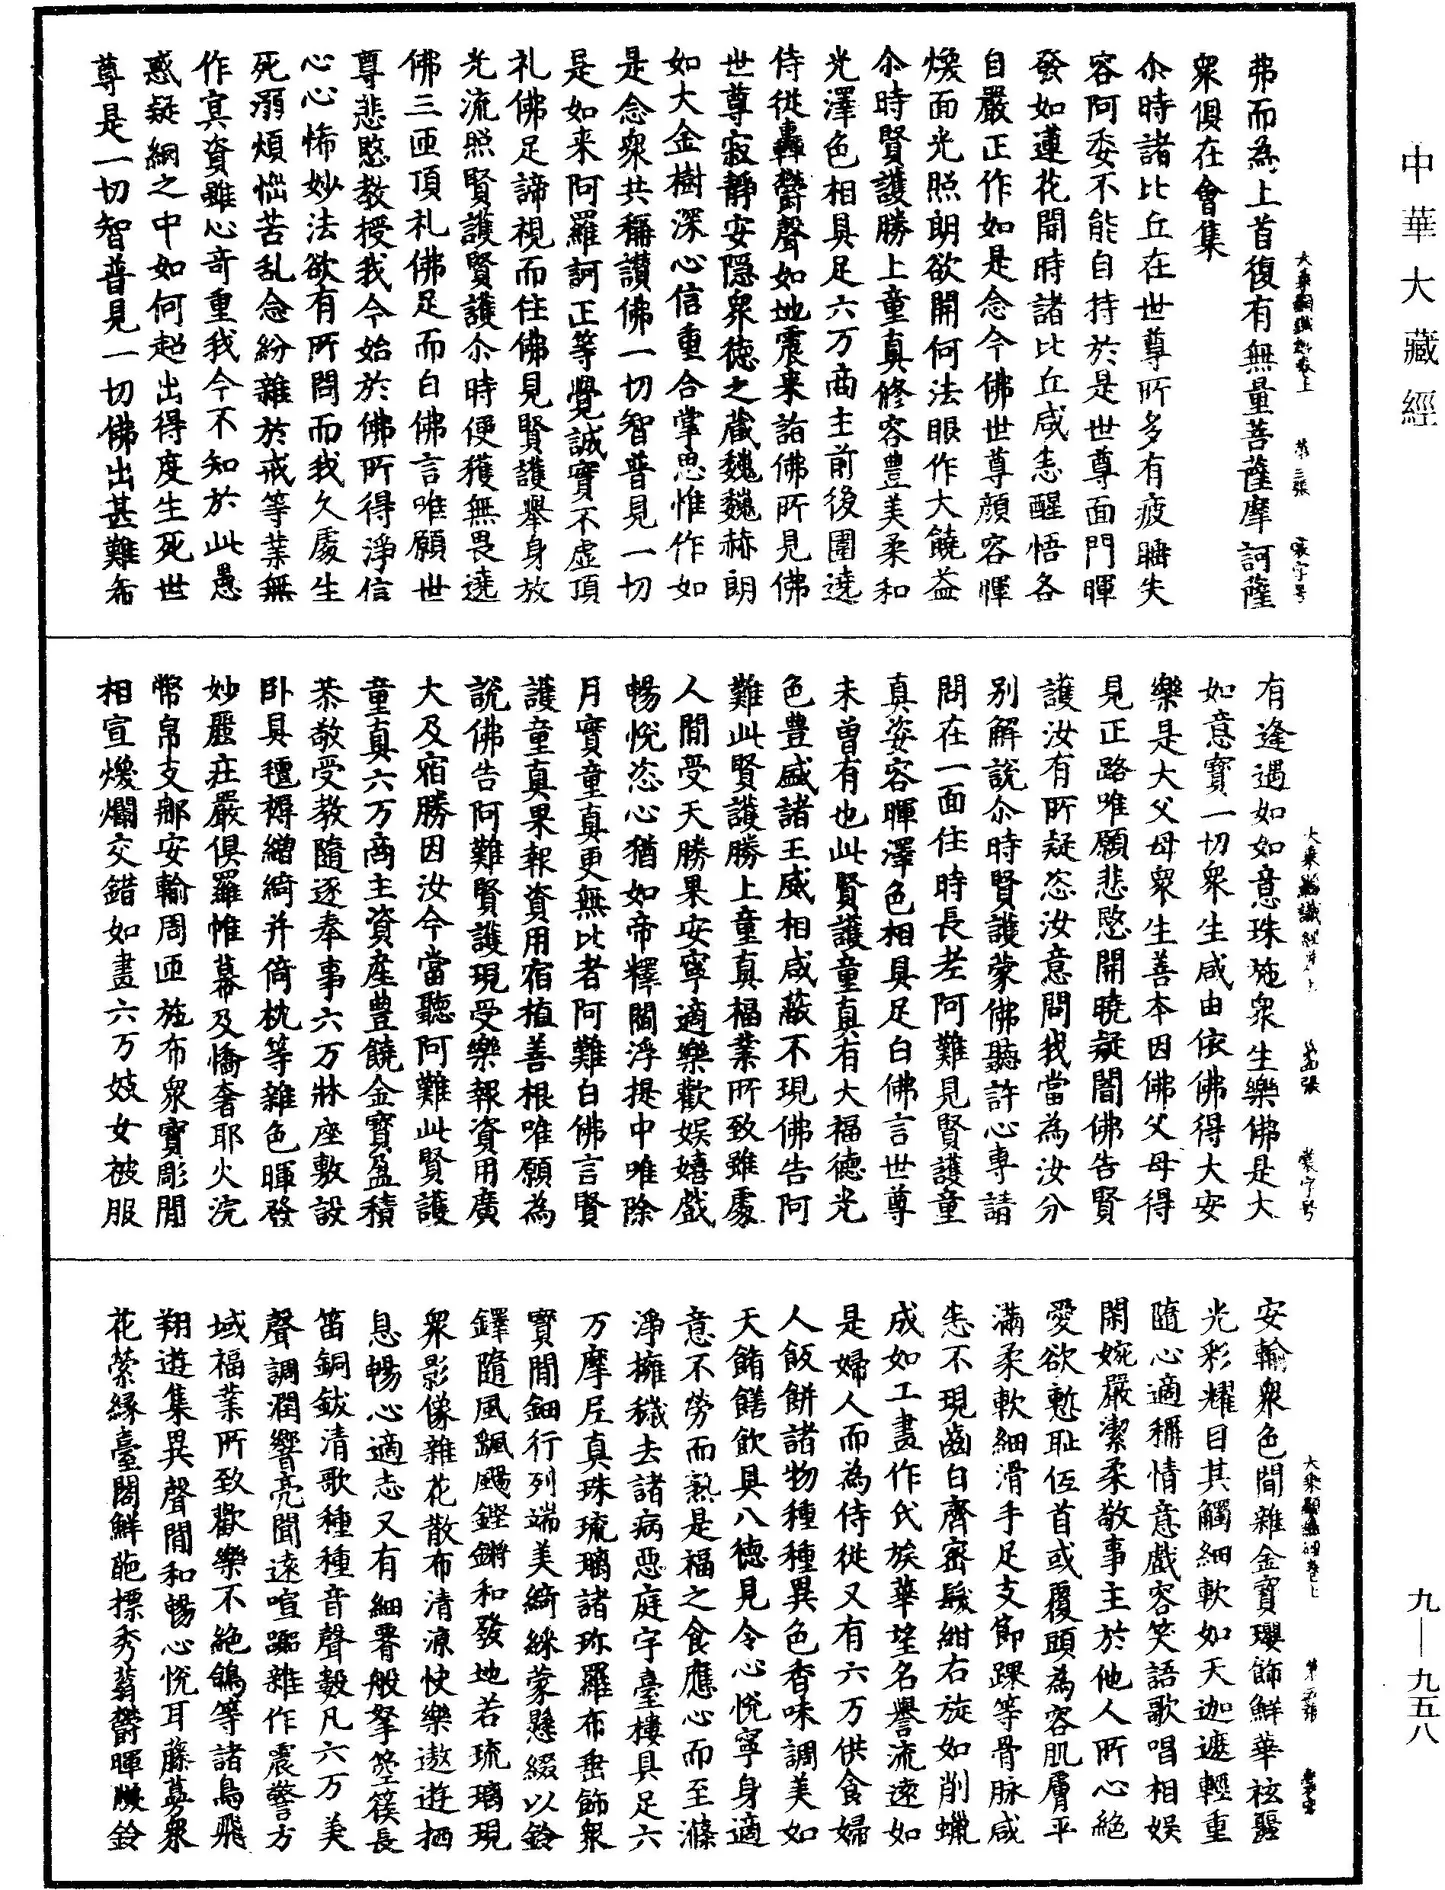 中華大藏經
弗而為上首復有無量菩薩摩訶薩
衆俱在會集
尒時諸比丘在世尊所多有疲睡失
容阿委不能自持於是世尊面門暉
發如蓮花開時諸比丘咸悉醒悟各
自嚴正作如是念今佛世尊顔容暉
煥面光照朗欲開何法眼作大饒益
尒時賢護勝上童真修容豊美柔和
光澤色相具足六万商主前後圍遶
侍從轟欝聲如地震来詣佛所見佛
世尊寂靜安隱衆徳之藏巍巍赫朗
如大金樹深心信重合掌思惟作如
是念衆共稱讃佛一切智普見一切
是如来阿羅訶正等覺誠實不虚頂
礼佛足諦視而住佛見賢護舉身放
光流照賢護賢護尒時便獲無畏遶
佛三匝頂礼佛足而白佛言唯願世
尊悲愍教授我今始於佛所得淨信
心心悕妙法欲有所問而我久處生
死溺煩惱苦乱念紛雜於戒等業無
作冥資雖心奇重我今不知於此愚
惑疑網之中如何超出得度生死世
尊是一切智普見一切佛出甚難希
有逢遇如如意珠施衆生樂佛是大
如意寶一切衆生咸由依佛得大安
樂是大父母衆生善本因佛父母得
見正路唯願悲愍開曉疑闇佛告賢
護汝有所疑恣汝意問我當為汝分
別解說尒時賢護蒙佛聽許心專請
問在一面住時長老阿難見賢護童
真姿容暉澤色相具足白佛言世尊
未曽有也此賢護童真有大福徳光
色豊盛諸王威相咸蔽不現佛告阿
難此賢護勝上童真福業所致雖處
人間受天勝果安寧適樂歡娱嬉戲
暢恱恣心猶如帝釋閻浮提中唯除
月實童真更無比者阿難白佛言賢
護童真果報資用宿植善根唯願為
說佛告阿難賢護現受樂報資用廣
大及宿勝因汝今當聽阿難此賢護
童真六万商主資産豊饒金寶盈積
恭敬受教隨逐奉事六万牀座敷設
卧具氊褥繒綺并倚枕等雜色暉發
妙麗莊嚴俱羅帷幕及憍奢耶火浣
幣帛支那安輸周匝施布衆寶彫間
相宣煥爛交錯如畫六万妓女被服
安輸衆色間雜金寶瓔飾鮮華袨麗
光彩耀目其觸細軟如天迦遮輕重
隨心適稱情意戲容笑語歌唱相娱
閑婉嚴潔柔敬事主於他人所心絶
愛欲慙耻伍首或覆頭為容肌膚平
滿柔軟細滑手足支節踝等骨脉咸
悉不現齒白齊密髮紺右旋如削蠟
成如工畫作氏族華望名譽流逺如
是婦人而為侍從又有六万供食婦
人飯餅諸物種種異色香味調美如
天餚饍飲具八徳見令心恱寧身適
意不勞而熟是福之食應心而至滌
淨擁穢去諸病惡庭宇臺樓具足六
万摩尼真珠琉璃諸珎羅布垂飾衆
寶間鈿行列端美綺綵蒙懸綴以鈴
鐸隨風飄颺鏗鏘和發地若琉璃現
衆影像雜花散布清涼快樂遨遊栖
息暢心適志又有細䯻般拏箜篌長
笛銅鈸清歌種種音聲數凡六万美
聲調潤響亮聞逺喧囂雜作震警方
域福業所致歡樂不絶鴿等諸鳥飛
翔遊集異聲間和暢心恱耳藤蔓衆
花縈縁臺閣鮮葩摽秀蓊欝暉暎鈴
九—九五八